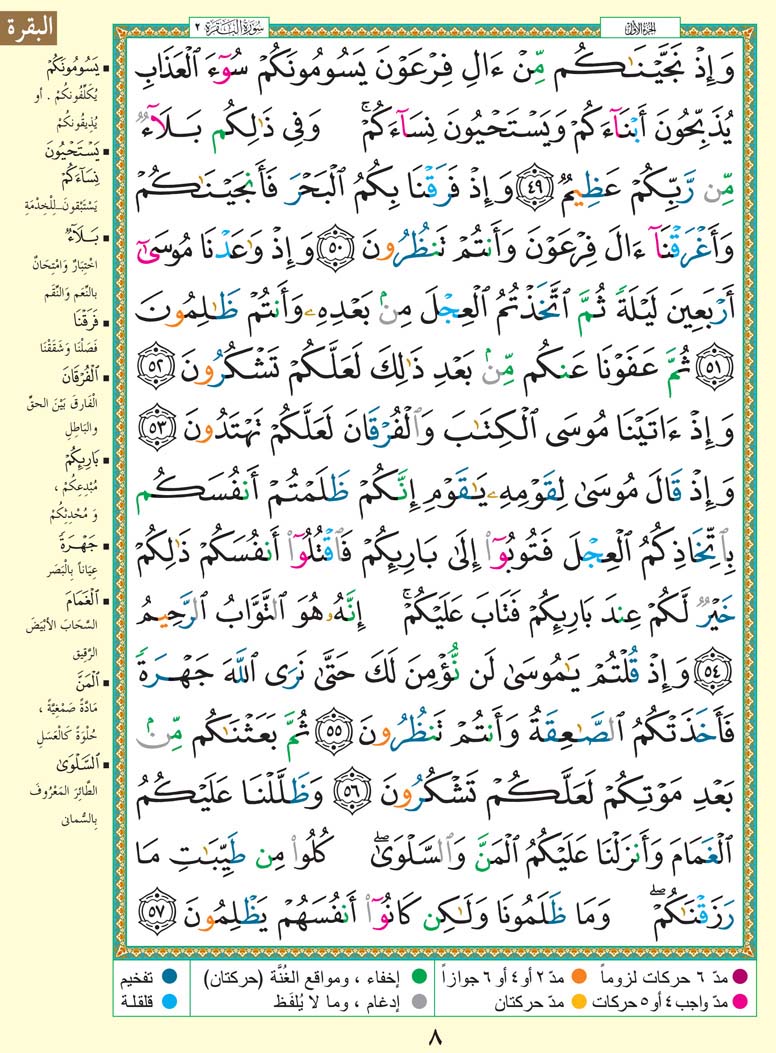 البقرة
سُورَةُ البَقَرَةِ ٢
الجزء الأول
وَإِذْ نَجَّيْنَٰكُم مِّنْ ءَالِ فِرْعَوْنَ يَسُومُونَكُمْ سُوٓءَ الْعَذَابِ
يُذَبِّحُونَ أَبْنَآءَكُمْ وَيَسْتَحْيُونَ نِسَآءَكُمْ ۚ وَفِى ذَٰلِكُم بَلَآءٌ
مِّن رَّبِّكُمْ عَظِيمٌ ٤٩ وَإِذْ فَرَقْنَا بِكُمُ الْبَحْرَ فَأَنجَيْنَٰكُمْ
وَأَغْرَقْنَآ ءَالَ فِرْعَوْنَ وَأَنتُمْ تَنظُرُونَ ٥٠ وَإِذْ وَٰعَدْنَا مُوسَىٰٓ
أَرْبَعِينَ لَيْلَةً ثُمَّ اتَّخَذْتُمُ الْعِجْلَ مِنۢ بَعْدِهِۦ وَأَنتُمْ ظَٰلِمُونَ
٥١ ثُمَّ عَفَوْنَا عَنكُم مِّنۢ بَعْدِ ذَٰلِكَ لَعَلَّكُمْ تَشْكُرُونَ ٥٢
وَإِذْ ءَاتَيْنَا مُوسَى الْكِتَٰبَ وَالْفُرْقَانَ لَعَلَّكُمْ تَهْتَدُونَ ٥٣
وَإِذْ قَالَ مُوسَىٰ لِقَوْمِهِۦ يَٰقَوْمِ إِنَّكُمْ ظَلَمْتُمْ أَنفُسَكُم
بِاتِّخَاذِكُمُ الْعِجْلَ فَتُوبُوٓا۟ إِلَىٰ بَارِئِكُمْ فَاقْتُلُوٓا۟ أَنفُسَكُمْ ذَٰلِكُمْ
خَيْرٌ لَّكُمْ عِندَ بَارِئِكُمْ فَتَابَ عَلَيْكُمْ ۚ إِنَّهُۥ هُوَ التَّوَّابُ الرَّحِيمُ
٥٤ وَإِذْ قُلْتُمْ يَٰمُوسَىٰ لَن نُّؤْمِنَ لَكَ حَتَّىٰ نَرَى اللَّهَ جَهْرَةً
فَأَخَذَتْكُمُ الصَّٰعِقَةُ وَأَنتُمْ تَنظُرُونَ ٥٥ ثُمَّ بَعَثْنَٰكُم مِّنۢ
بَعْدِ مَوْتِكُمْ لَعَلَّكُمْ تَشْكُرُونَ ٥٦ وَظَلَّلْنَا عَلَيْكُمُ
الْغَمَامَ وَأَنزَلْنَا عَلَيْكُمُ الْمَنَّ وَالسَّلْوَىٰ ۖ كُلُوا۟ مِن طَيِّبَٰتِ مَا
رَزَقْنَٰكُمْ ۖ وَمَا ظَلَمُونَا وَلَٰكِن كَانُوٓا۟ أَنفُسَهُمْ يَظْلِمُونَ ٥٧
▪ يَسُومُونَكُمْ
يُكَلِّفُونَكُمْ . أو
يُذِيقُونَكُمْ
▪ يَسْتَحْيُونَ
نِسَآءَكُمْ
يَسْتَبْقُونَ لِلْخِدْمَةِ
▪ بَلَآءٌ
اخْتِبَارٌ وَامْتِحَانٌ
بالنِّعَمِ وَالنِّقَمِ
▪ فَرَقْنَا
فَصَلْنَا وَشَقَقْنَا
▪ الْفُرْقَانَ
الْفَارِقَ بَيْنَ الحَقِّ
والبَاطِلِ
▪ بَارِئِكُمْ
مُبْدِعِكُمْ ،
وَ مُحْدِثِكُمْ
▪ جَهْرَةً
عِيَاناً بِالْبَصَرِ
▪ الْغَمَامَ
السَّحَابَ الأبْيَضَ
الرَّقِيقَ
▪ الْمَنَّ
مَادَّةً صَمْغِيَّةً ،
حُلْوَةً كَالْعَسَلِ
▪ السَّلْوَىٰ
الطَّائِرَ المَعْرُوفَ
بِالسُّمانى
مدّ ٦ حركات لزوماً مدّ ٢ أو ٤ أو ٦ جوازاً إخفاء ، ومواقع الغُنَّة (حركتان) تفخيم
مدّ واجب ٤ أو ٥ حركات مدّ حركتان إدغام ، وما لا يُلفَظ قلقلة
٨